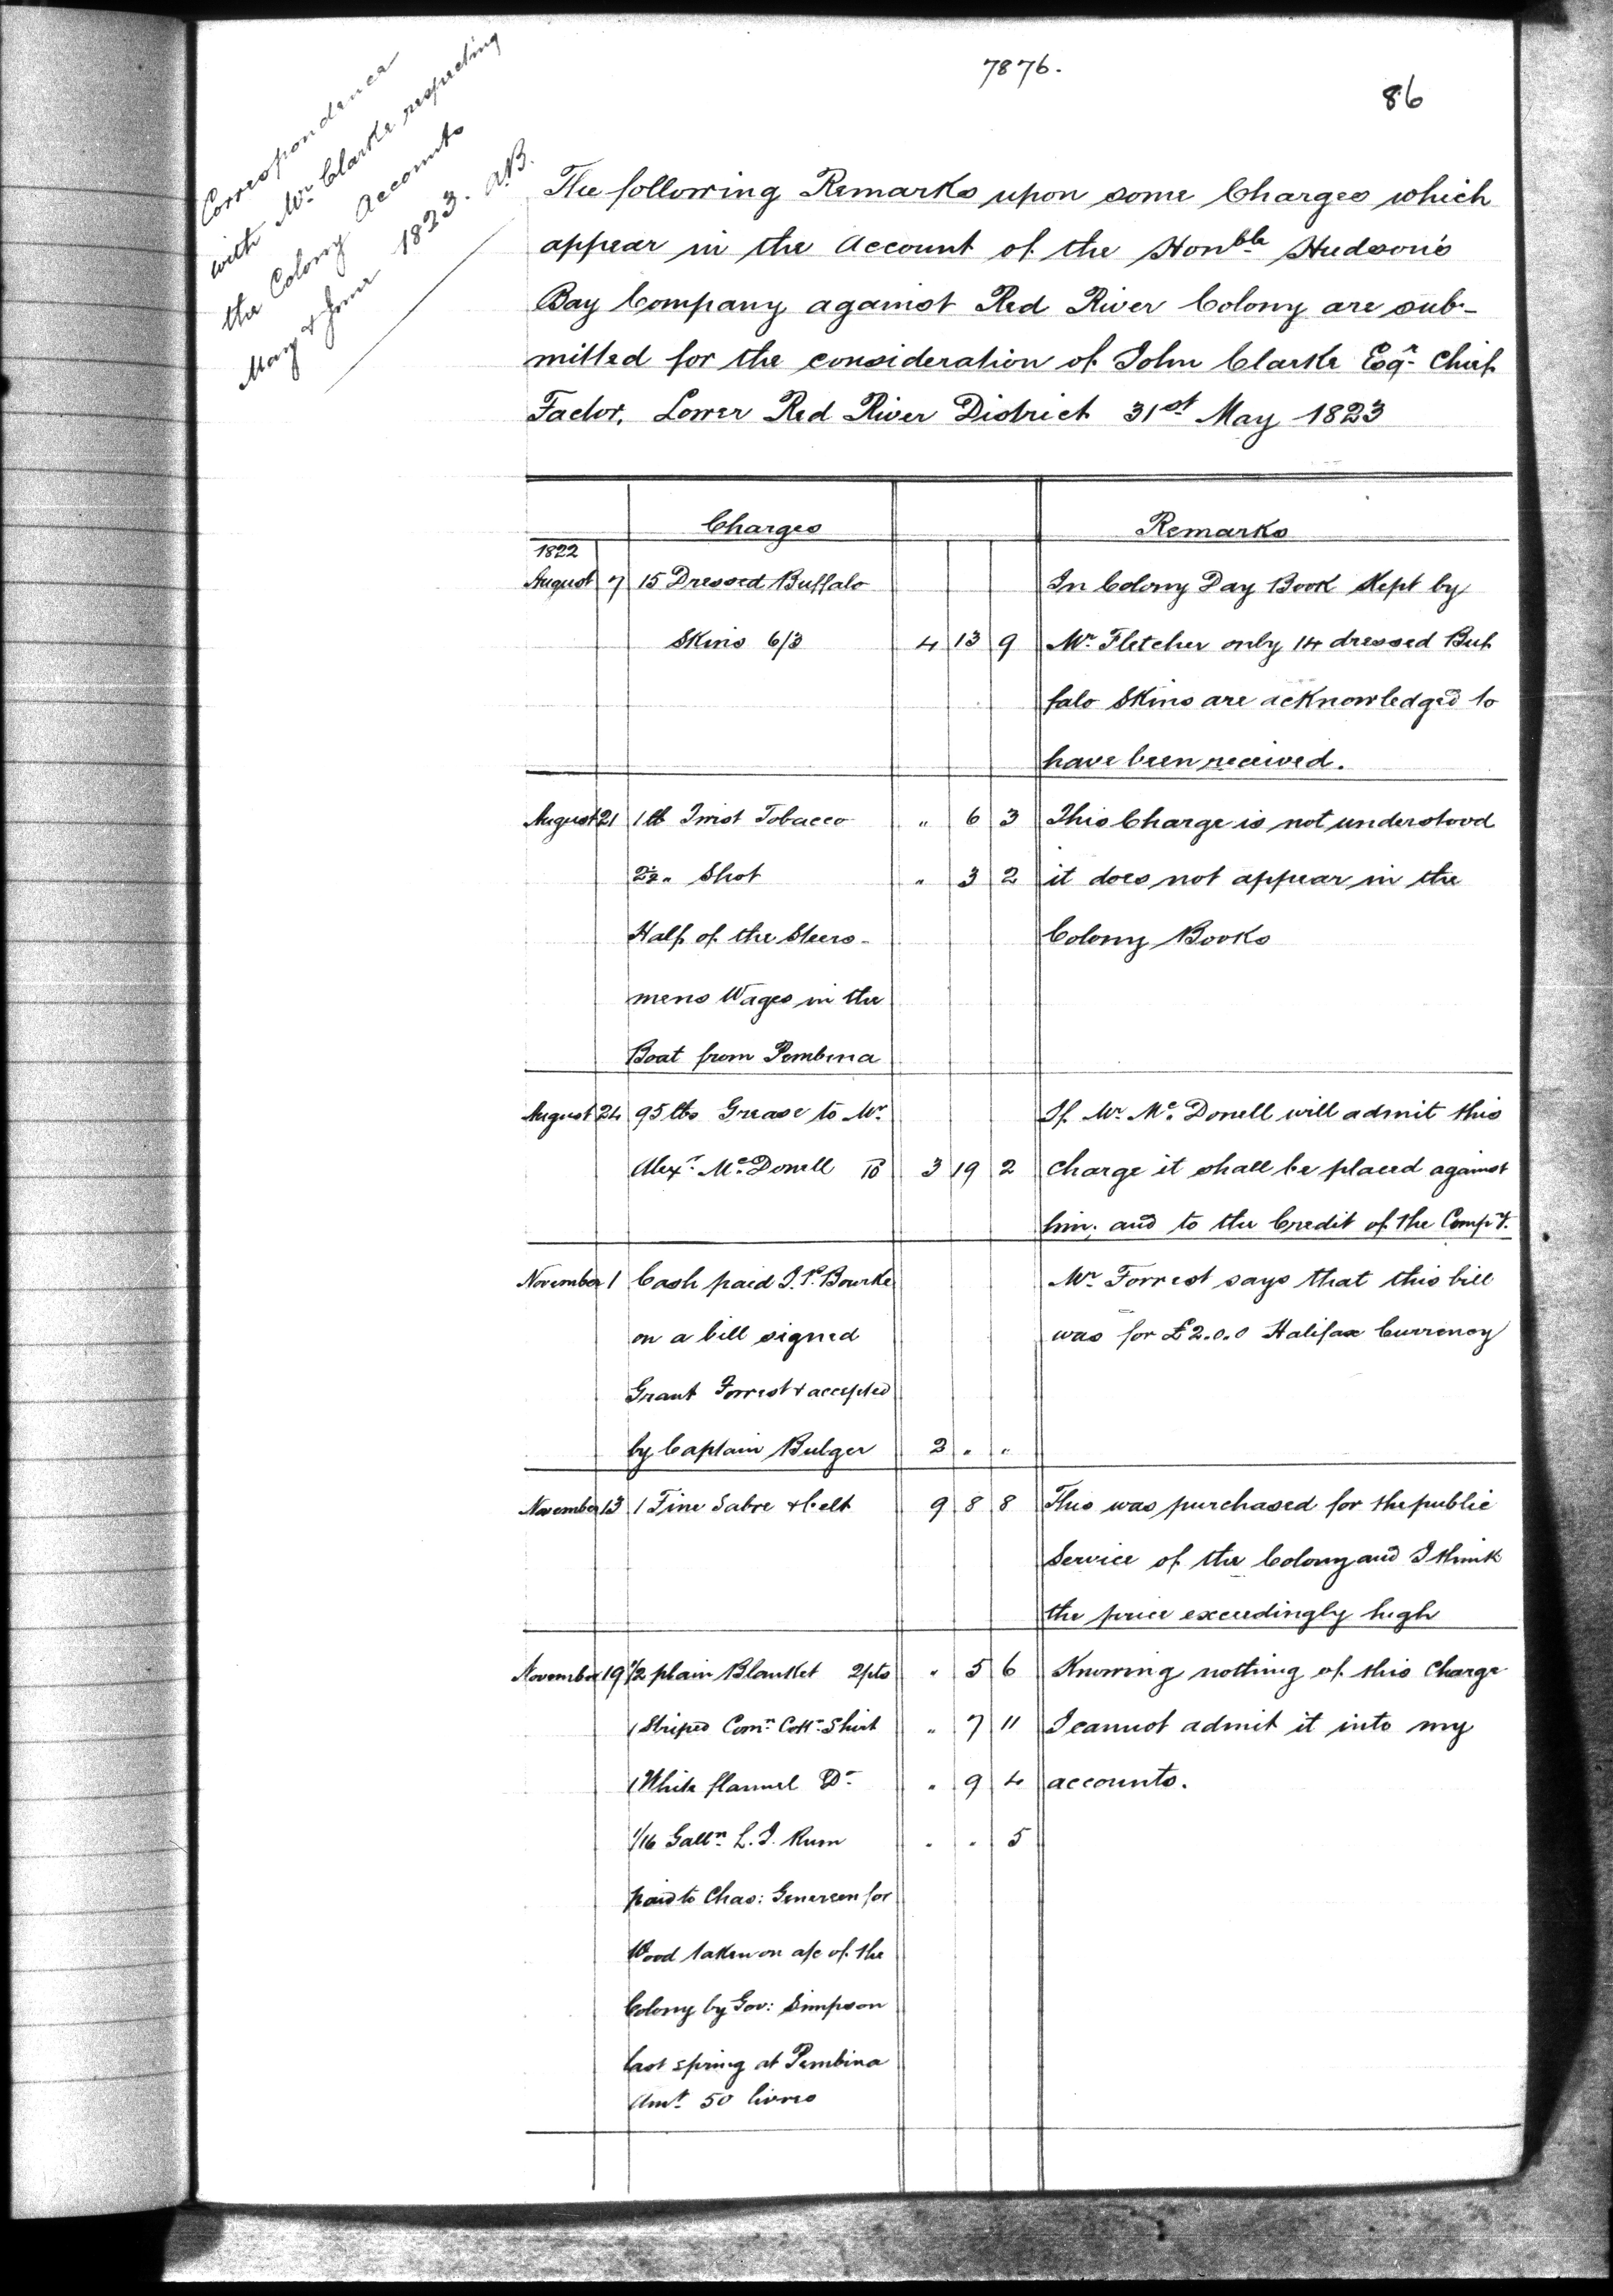 7876.
86
Correspondence
with Mr Clarke respecting
the Colony Accounts
May & June 1823. A.B.
The following Remarks upon some Charges which
appear in the Account of the Honble Hudson's
Bay Company against Red River Colony are sub-
mitted for the consideration of John Clarke Esqr Chief
Factor, Lower Red River District 31st May 1823
Charges Remarks
1822
August 7 15 Dressed Buffalo In Colony Day Book Kept by
Skins 6/3 4 13 9 Mr Fletcher only 14 dressed Buf
falo Skins are acknowledged to
have been received.
August 21 1 lb Twist Tobacco " 6 3 This Charge is not understood
2½ " Shot " 3 2 it does not appear in the
Half of the Steers- Colony Books
mens Wages in the
Boat from Pembina
August 24 95 lbs Grease to Mr If Mr Mc Donell will admit this
Alexr Mc Donell 3 19 2 Charge it shall be placed against
him; and to the Credit of the Compy.
November 1 Cash paid J. P. Bourke Mr Forrest says that this bill
on a bill signed was for £2.0.0 Halifax Currency
Grant Forrest & accepted
by Captain Bulger 2 " "
November 13 1 Fine Sabre & belt 9 8 8 This was purchased for the public
Service of the Colony and I think
the price exceedingly high
November 19 1/2 plain Blanket 2pts " 5 6 Knowing nothing of this Charge
1 Striped Comn Cottn Shirt " 7 11 I cannot admit it into my
1 White flannel Do " 9 4 accounts.
1/16 Galln L. I. Rum " " 5
paid to Chas: for
Wood taken on a/c of the
Colony by Gov: Simpson
last spring at Pembina
Amt 50 livres